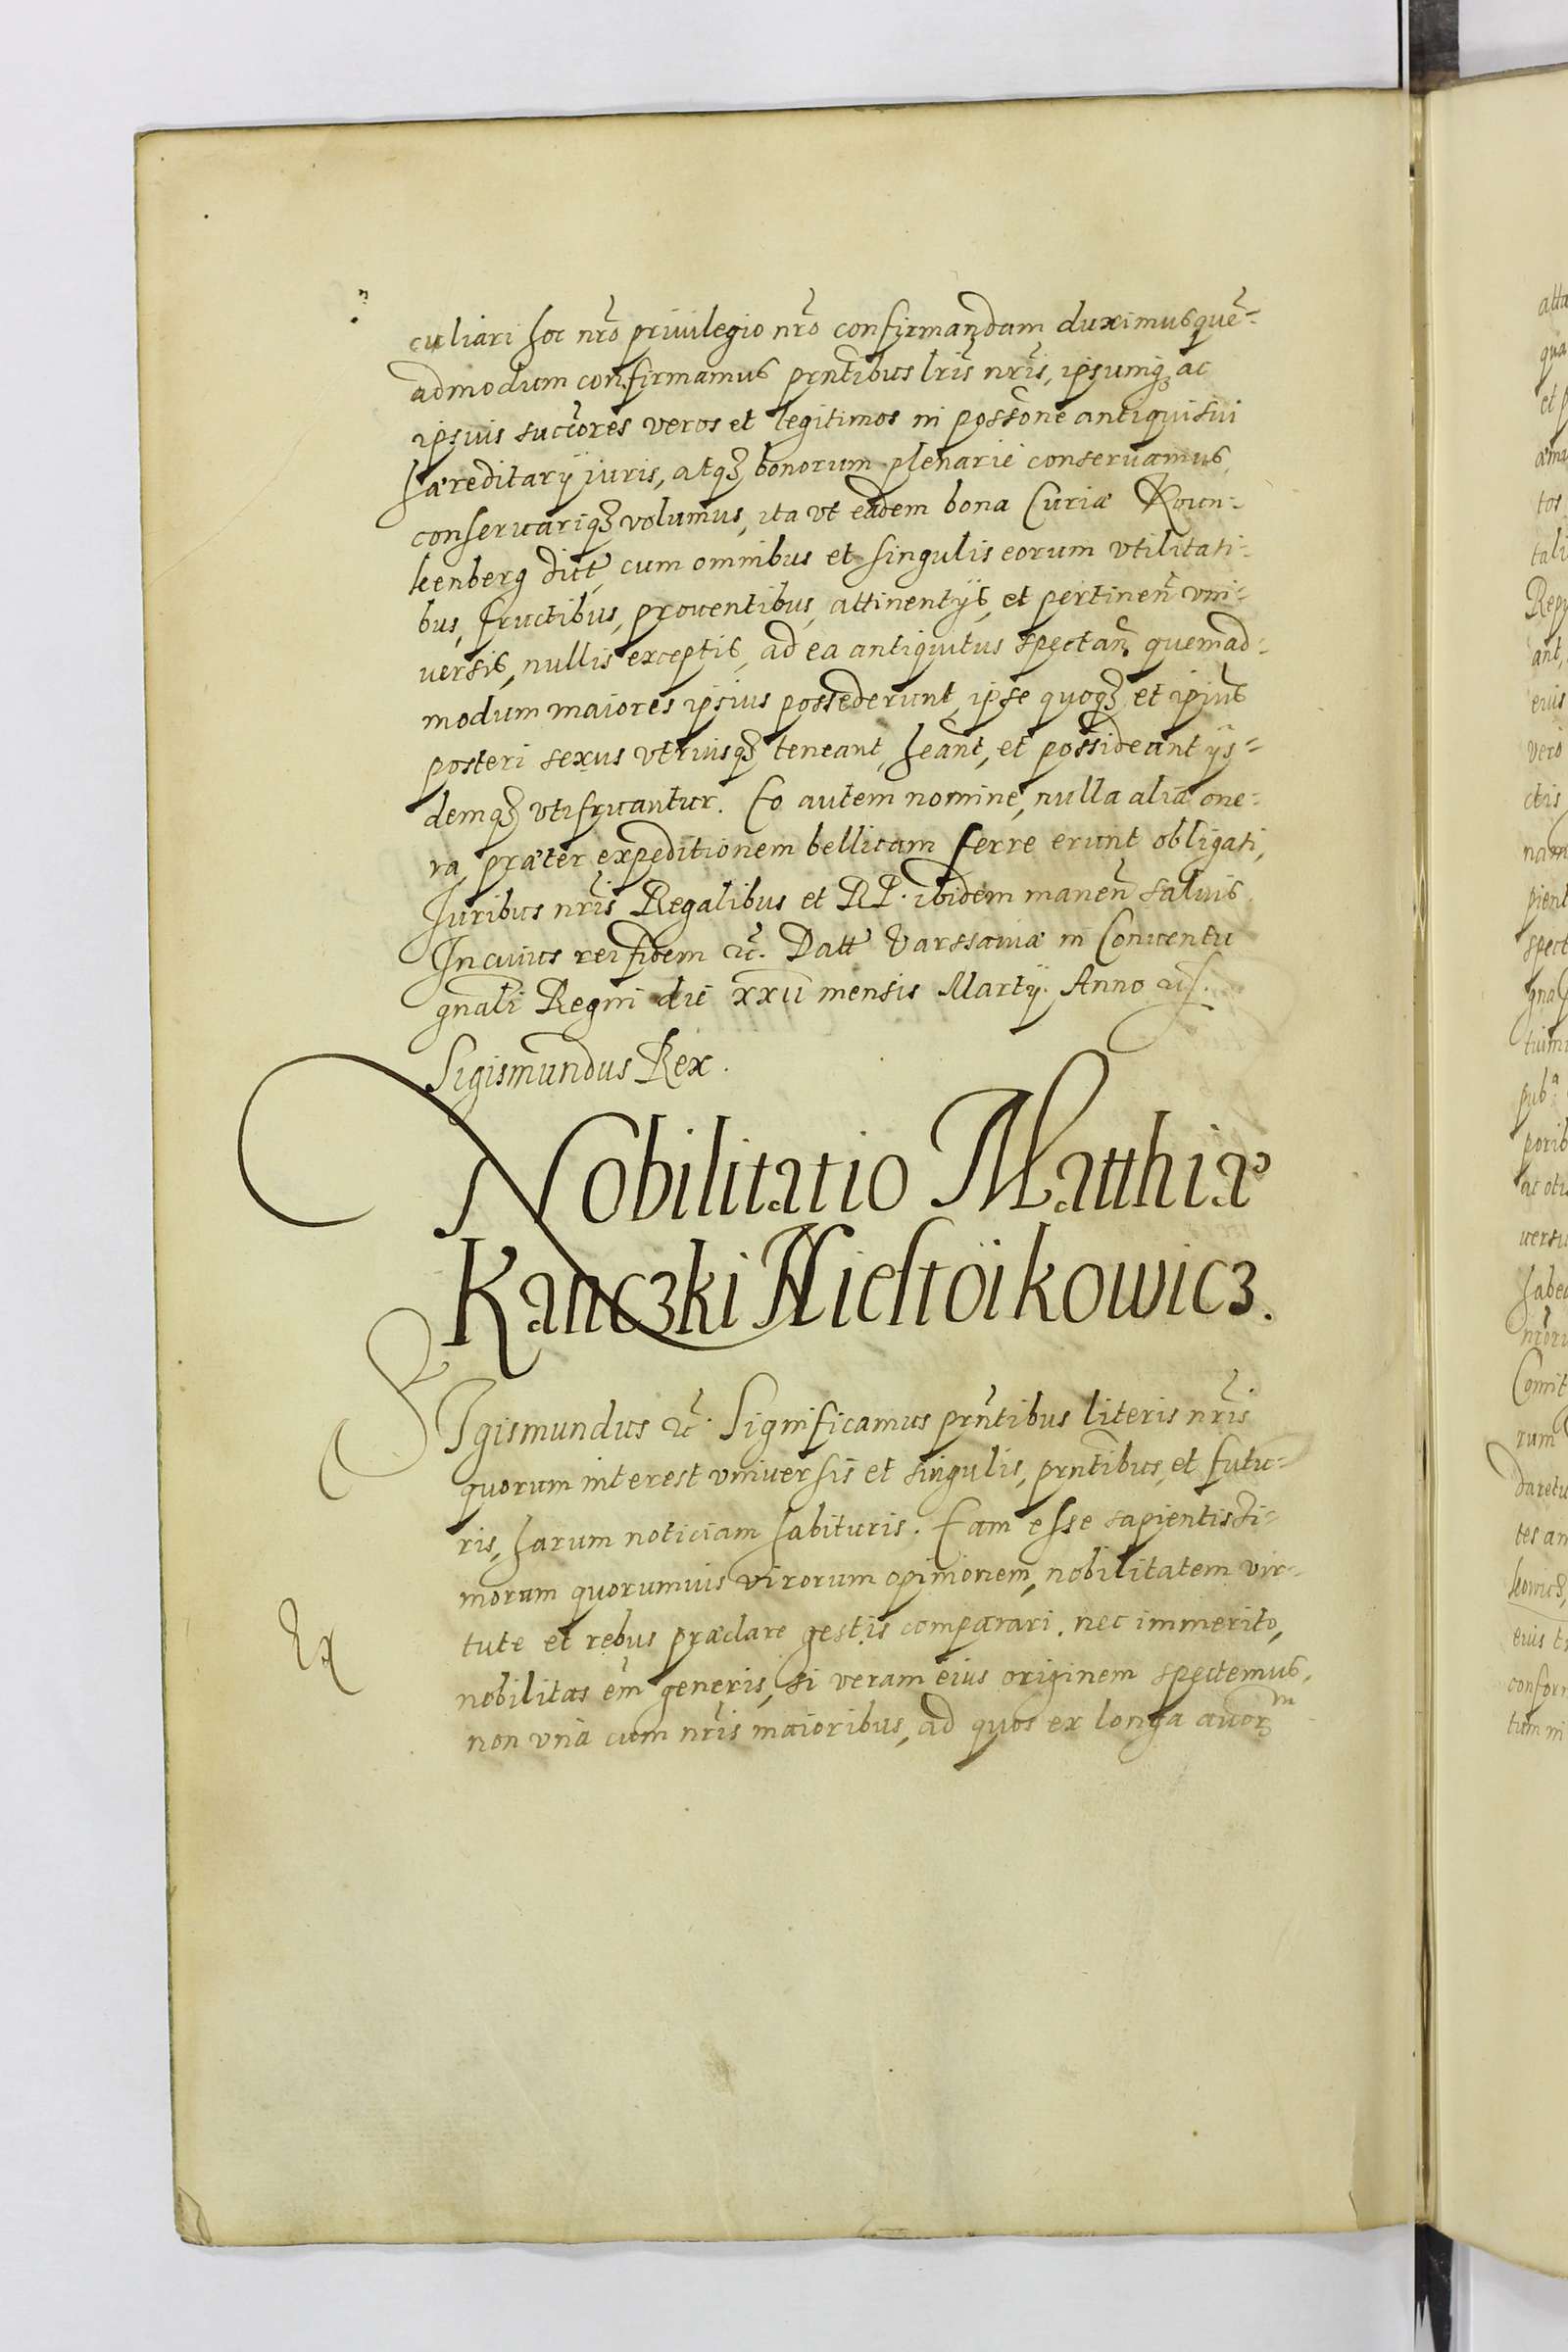 culiari hoc nr̃o priuilegio nr̃o confirmandam duximus quẽ=
admodum confirmamus prñtibus lr̃is nr̃is, ipsumq₃ ac
ipsius succ̃ores veros et legitimos in poss̃one antiqui sui
hæreditarÿ iuris, atq₃ bonorum plenarie conseruamus,
conseruariq₃ volumus, ita vt eadem bona Curiæ Roun=
kenberg dict̃, cum omnibus et singulis eorum vtilitati=
bus, fructibus, prouentibus, attinentÿs, et pertineñ vni=
uersis, nullis exceptis, ad ea antiquitus spectañ. quemad=
modum maiores ipsius possederunt, ipse quoq₃ et ipĩus
posteri sexus vtriusq₃ teneant, hẽant, et possideant ÿs=
demq₃ vtifruantur. Eo autem nomine, nulla alia one=
ra, præter expeditionem bellicam ferre erunt obligati,
Iuribus nr̃is Regalibus et RP. ibidem maneñ saluis.
In cuius rei fidem ℯc̃. Datt̃ Varssauiæ in Conuentu
gnãli Regni die xxii mensis Martÿ. Anno us.
Sigismundus Rex.
Nobilitatio Matthiæ
Kanczki Niestoikowicz.
SIgismundus ℯc̃. Significamus prñtibus literis nr̃is
quorum interest vniuersis et singulis, prñtibus, et futu=
ris, harum noticiam habituris. Eam esse sapientissi=
morum quorumuis virorum opinionem, nobilitatem vir=
tute et rebus præclare gestis comparari, nec immerito,
Ex
nobilitas em̃ generis, si veram eius originem spectemus,
non vnà cum nr̃is maioribus, ad quos ex longa auorₘ